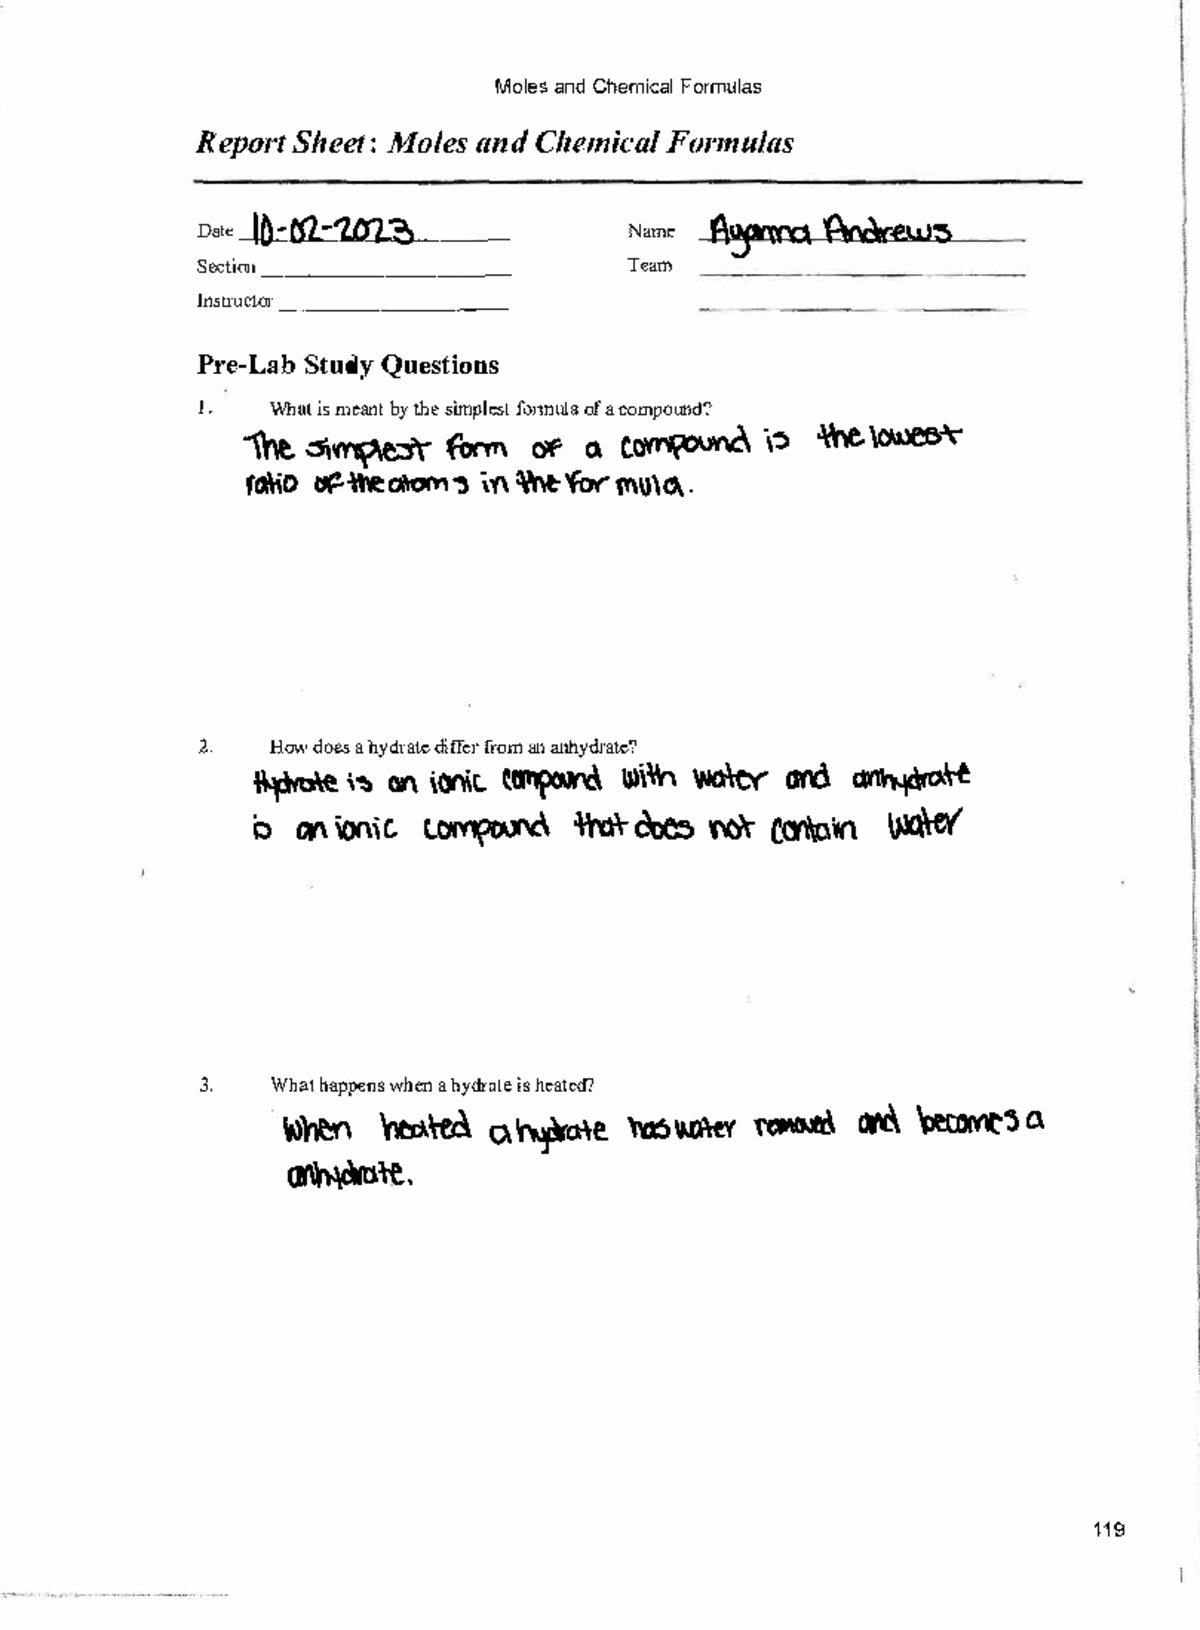 Moles and Chemical Formulas
Report Sheet: Moles and Chemical Formulas
Date 10-02-2023 Name Ayanna Andrews
Section Team
Instructor
Pre-Lab Study Questions
1. What is meant by the simplest formula of a compound?
The simplest form of a compound is the lowest
ratio of the atoms in the formula.
2. How does a hydrate differ from an anhydrate?
Hydrate is an ionic compound with water and anhydrate
is an ionic compound that does not contain water
3. What happens when a hydrate is heated?
When heated a hydrate has water removed and becomes a
anhydrate.
119